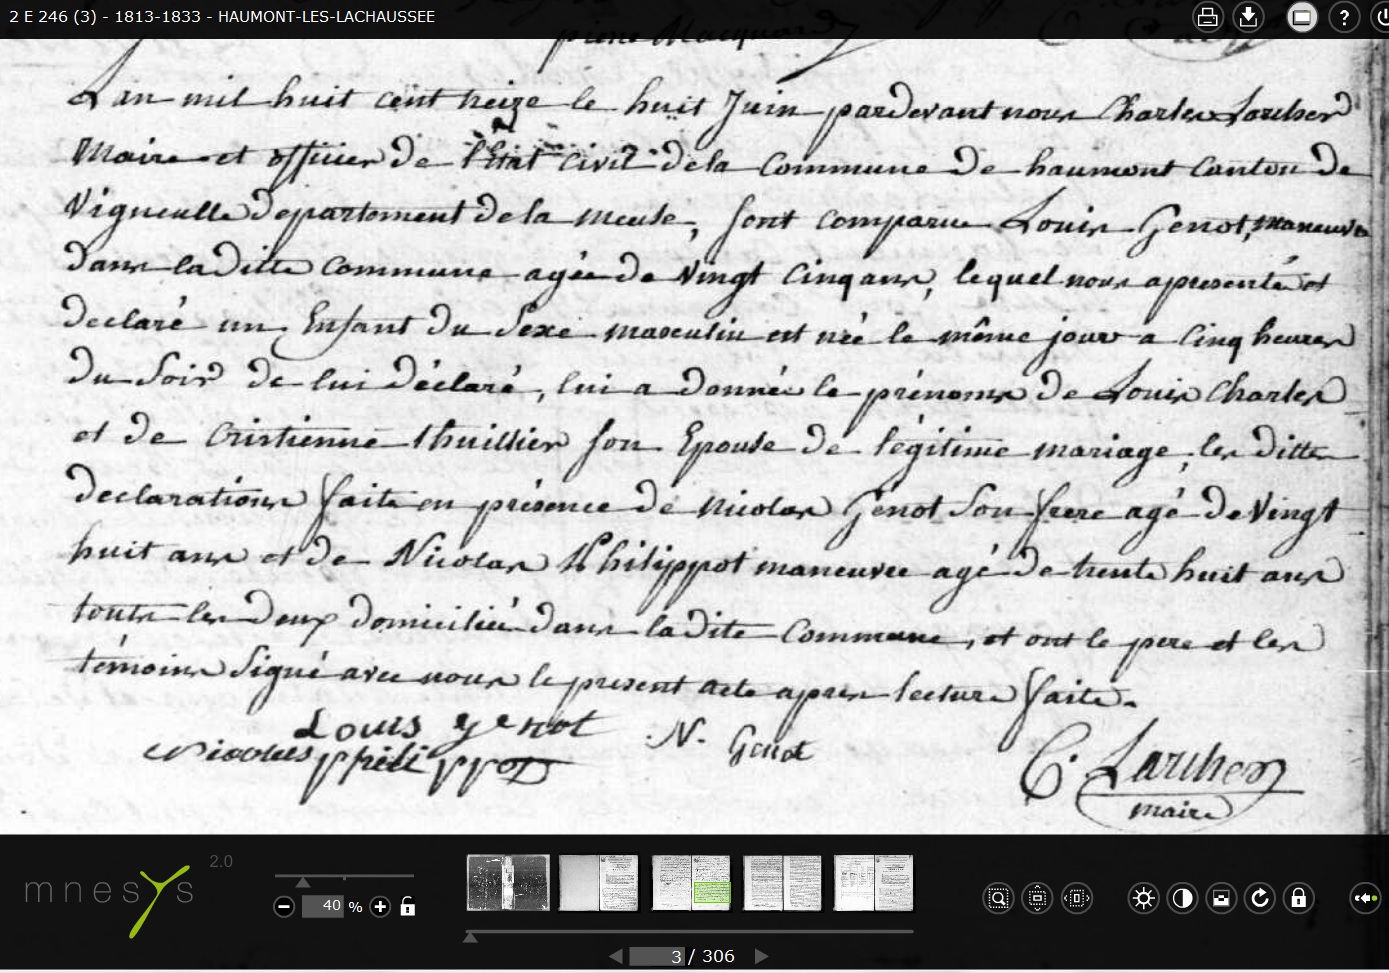 2 E 246 (3) - 1813-1833 - HAUMONT-LES-LACHAUSSEE
pierre Macquard
Lan mil huit cent treize le huit Juin pardevant nous Charles Larcher
Maire et officier de l'Etat civil de la Commune de haumont Canton de
Vigneulle departement de la Meuse, sont comparue Louis Genot, maneuvre
dans la ditte Commune agée de vingt cinq ans, lequel nous a presenté et
declaré un Enfant du Sexe masculin est née le même jour a cinq heures
du Soir de lui déclaré, lui a donnée le prénoms de Louis Charles
et de Cristienne thuillier son Epouse de légitime mariage, les ditte
declarations faite en présence de Nicolas Génot Son frere agé de Vingt
huit ans et de Nicolas Philippot maneuvre agé de trente huit ans
touts les deux domiciliée dans la dite Commune, et ont le pere et les
témoins Signé avec nous le present acte apres lecture faite.
Louis genot
N. Genot
Nicolas philippot
C. Larcher
maire
mnesys 2.0
40 %
3 / 306